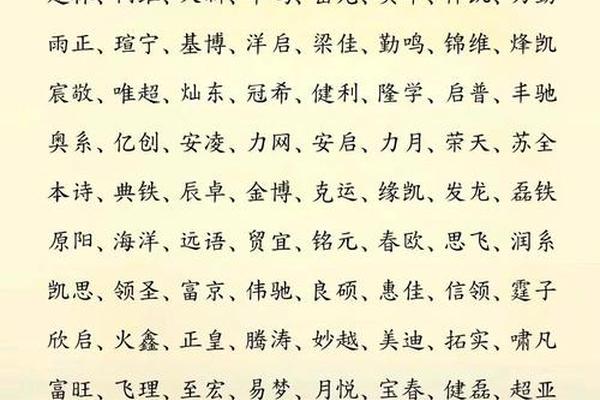 雨正、瑄宁、基博、洋启、梁佳、勤鸣、锦维、烽凯
宸敬、唯超、灿东、冠希、健利、隆学、启普、丰驰
奥系、亿创、安凌、力网、安启、力月、荣天、苏全
本诗、典铁、辰卓、金博、克运、缘凯、发龙、磊铁
原阳、海洋、远语、贸宜、铭元、春欧、思飞、润系
凯思、领圣、富京、伟驰、良硕、惠佳、信领、霆子
欣启、火鑫、正皇、腾涛、妙越、美迪、拓实、啸凡
富旺、飞理、至宏、易梦、月悦、宝春、健磊、超亚